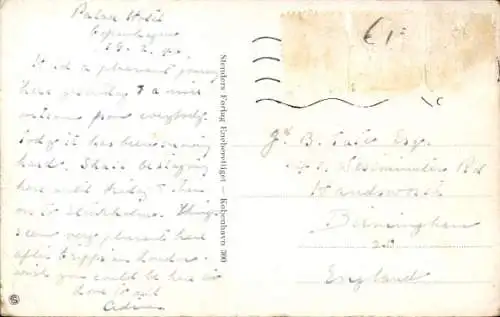 Palace Hotel
Copenhagen
a pleasant journey
here yesterday & a nice
welcome from everybody.
Today it has been raining
hard. Shall be staying
here until Friday & then
on to Stockholm. Things
seem very pleasant here
after trip in London.
wish you could be here
Stenders Forlag Eneberettiget — Kobenhavn 300
€1=
B. Esq.
Westminster Rd
Handsworth
Birmingham
20
England